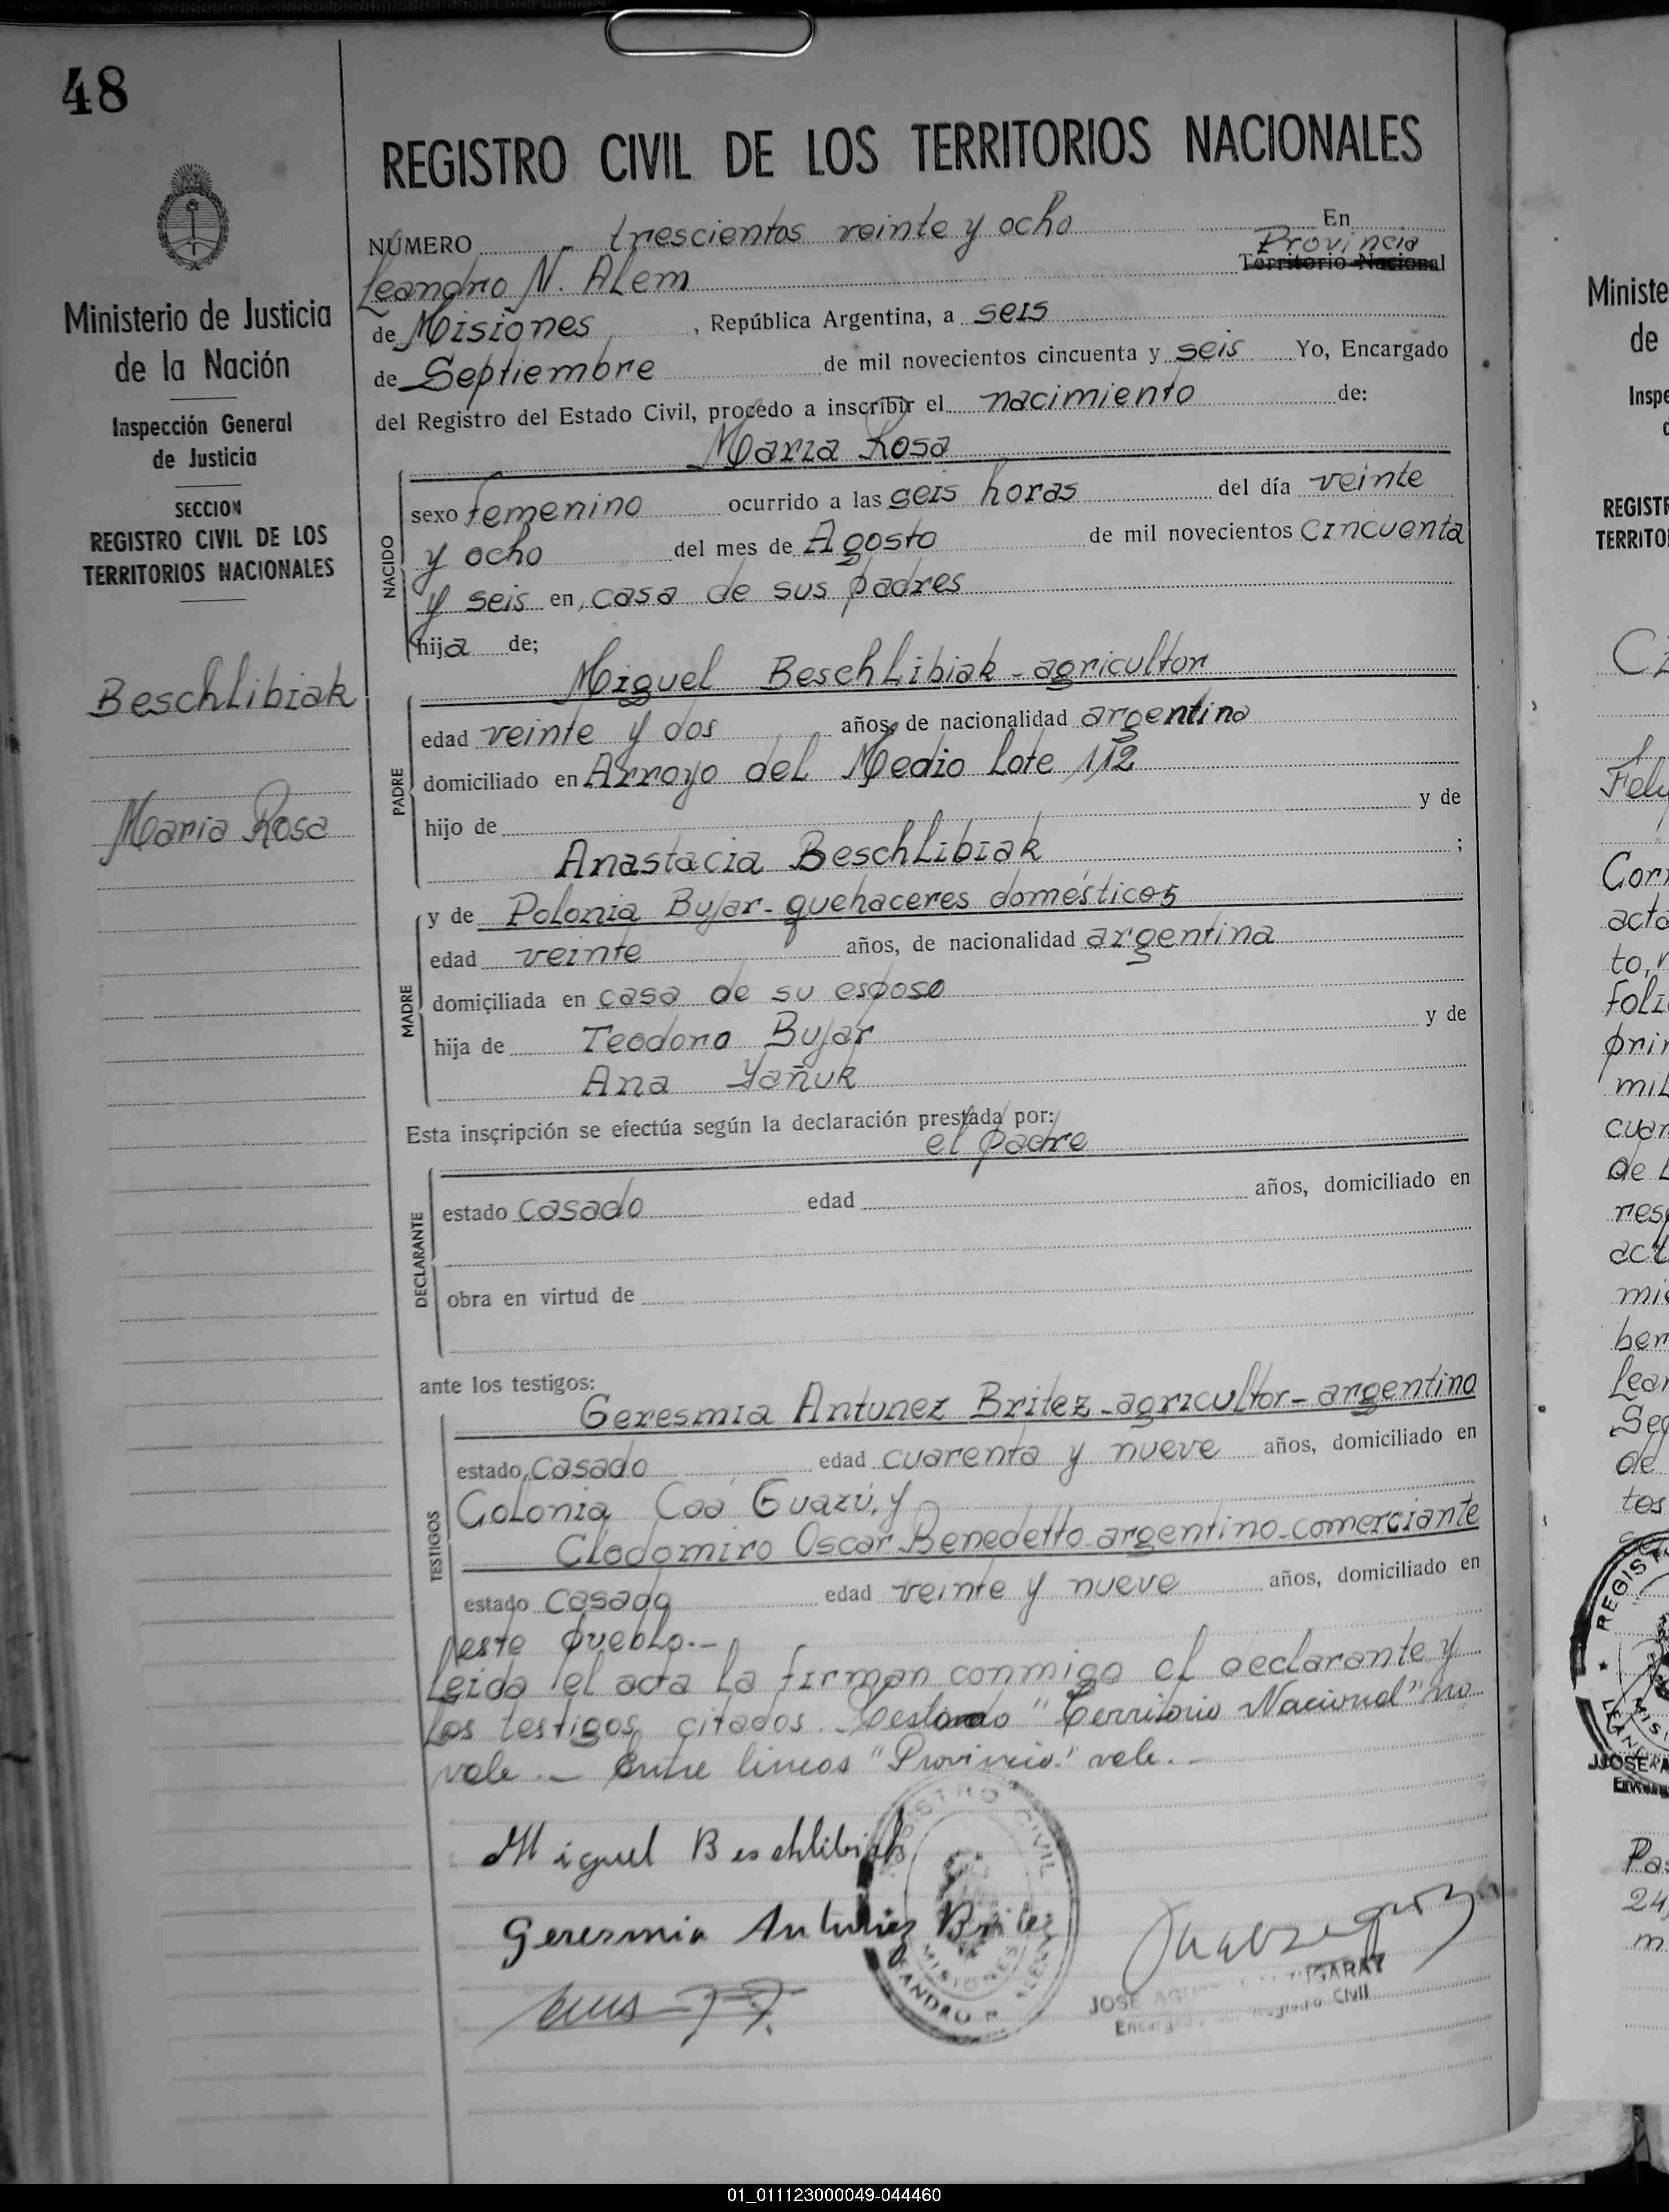 48
REGISTRO CIVIL DE LOS TERRITORIOS NACIONALES
NÚMERO trescientos veinte y ocho En
Provincia
Leandro N. Alem Territorio Nacional
de Misiones, República Argentina, a seis
de Septiembre de mil novecientos cincuenta y seis Yo, Encargado
del Registro del Estado Civil, procedo a inscribir el nacimiento de:
Maria Rosa
Ministerio de Justicia
de la Nación
Inspección General
de Justicia
SECCION
REGISTRO CIVIL DE LOS
TERRITORIOS NACIONALES
Beschlibiak
Maria Rosa
NACIDO
sexo femenino ocurrido a las seis horas del día veinte
y ocho del mes de Agosto de mil novecientos cincuenta
y seis en casa de sus padres
hija de;
Miguel Beschlibiak - agricultor
PADRE
edad veinte y dos años, de nacionalidad argentino
domiciliado en Arroyo del Medio Lote 112
hijo de y de
Anastacia Beschlibiak ;
MADRE
y de Polonia Bujar - quehaceres domésticos
edad veinte años, de nacionalidad argentina
domiciliada en casa de su esposo
hija de Teodoro Bujar y de
Ana Yañuk
Esta inscripción se efectúa según la declaración prestada por:
el padre
DECLARANTE
estado casado edad años, domiciliado en
obra en virtud de
ante los testigos:
Geresmia Antunez Britez - agricultor - argentino
TESTIGOS
estado casado edad cuarenta y nueve años, domiciliado en
Colonia Caá Guazú, y
Clodomiro Oscar Benedetto - argentino - comerciante
estado casado edad veinte y nueve años, domiciliado en
este pueblo.-
Leida el acta la firman conmigo el declarante y
los testigos citados. Testado "Territorio Nacional" no
vale.- Entre lineas "Provincia" vale.-
Miguel Beschlibiak
Geresmia Antunez Britez
REGISTRO CIVIL
MISIONES
LEANDRO N. ALEM
JOSE
Encargado del Registro Civil
Ministe
de
Inspe
REGISTR
TERRITO
acta
to,
mil
de L
ber
Lea
de
tos
REGIST
JOSE A
Pa
24
m
01_011123000049-044460